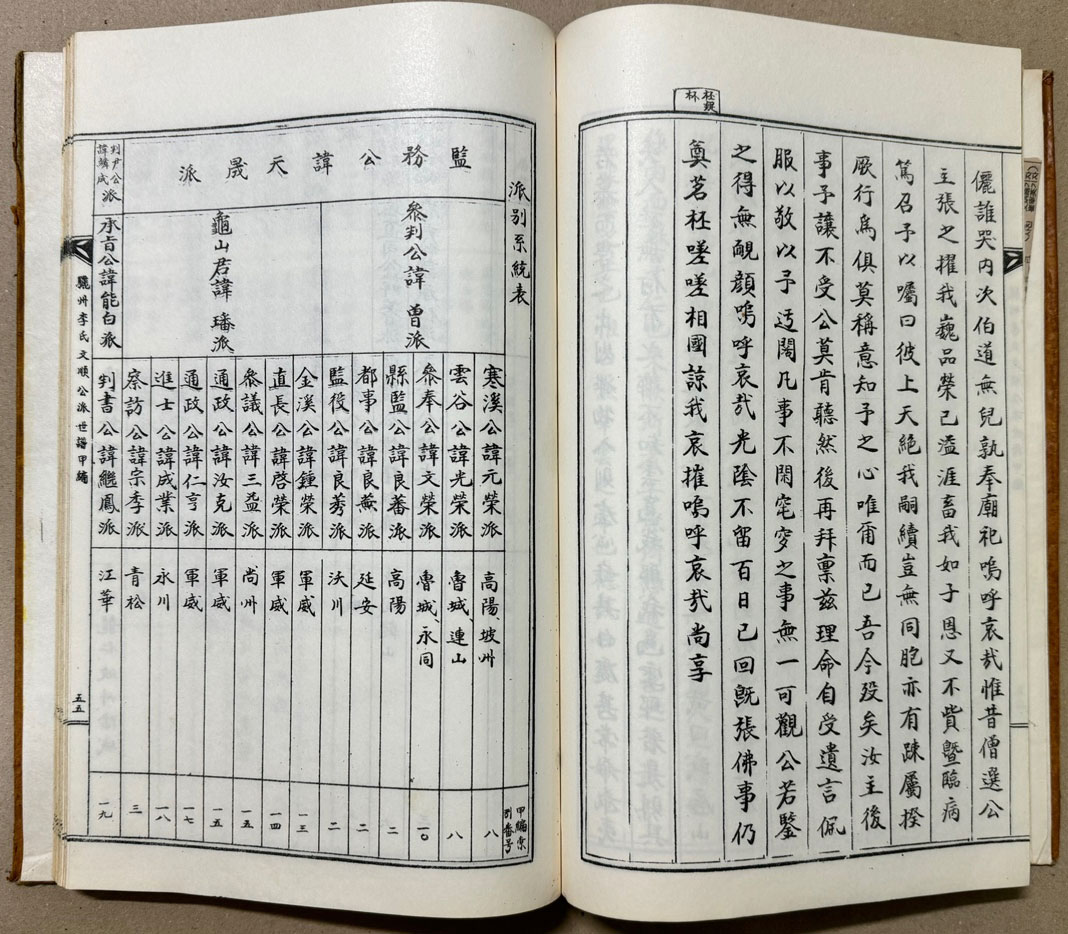 儷誰哭內次伯道無兒孰奉廟祀嗚呼哀㦲惟昔僧選公
主張之擢我巍品榮已溢涯畜我如子恩又不貲曁臨病
篤召予以囑曰彼上天絶我嗣續豈無同胞亦有踈屬揆
厥行爲俱莫稱意知予之心唯甭而已吾今歿矣汝主後
事予讓不受公莫肯聽然後再拜禀兹理命自受遺言佩
服以敬以予迃闊凡事不閑窀穸之事無一可觀公若鑒
之得無靦顔嗚呼哀㦲光陰不留百日已回旣張佛事仍
奠茗柸嗟嗟相國諒我哀摧嗚呼哀㦲尚享
柸
杯
派別系統表
監務公諱天晟派
判尹公
諱
成派
叅判公諱曾派
龜山君諱璠派
承旨公諱能白派
寒溪公諱元榮派
雲谷公諱光榮派
叅奉公諱文榮派
縣監公諱良蕃派
都事公諱良
派
監役公諱良莠派
金溪公諱鍾榮派
直長公諱啓榮派
叅議公諱三益派
通政公諱汝克派
通政公諱仁亨派
進士公諱成業派
察訪公諱宗季派
判書公諱繼鳳派
高陽、坡州
魯城、連山
魯城、永同
高陽
延安
沃川
軍威
軍威
尙州
軍威
軍威
永川
青松
江華
甲編
別番号
八
八
一〇
二
二
二
一三
一四
一五
一五
一七
一八
三
一九
驪州李氏文順公派世譜甲編
五五